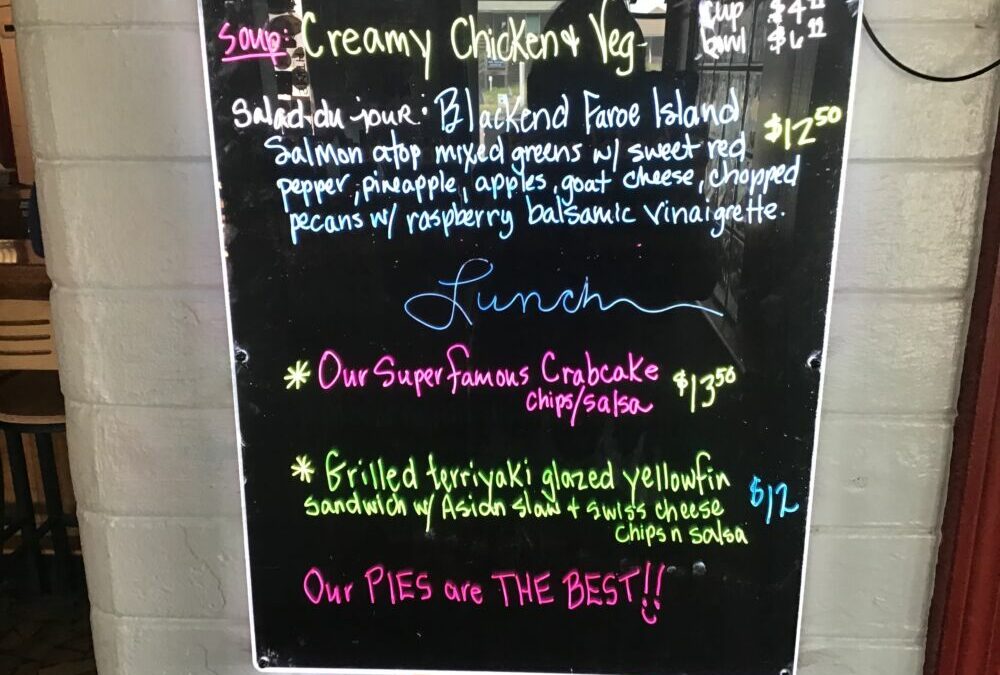 Soup: Creamy Chicken & Veg-
cup $4
bowl $6
Salad du jour: Blackend Faroe Island $12.50
Salmon atop mixed greens w/ sweet red
pepper, pineapple, apples, goat cheese, chopped
pecans w/ raspberry balsamic vinaigrette.
Lunch
* Our Super famous Crabcake $13.50
chips/salsa
* Grilled terriyaki glazed yellowfin
sandwich w/ Asian slaw + swiss cheese $12
Chips n salsa
Our PIES are THE BEST!!